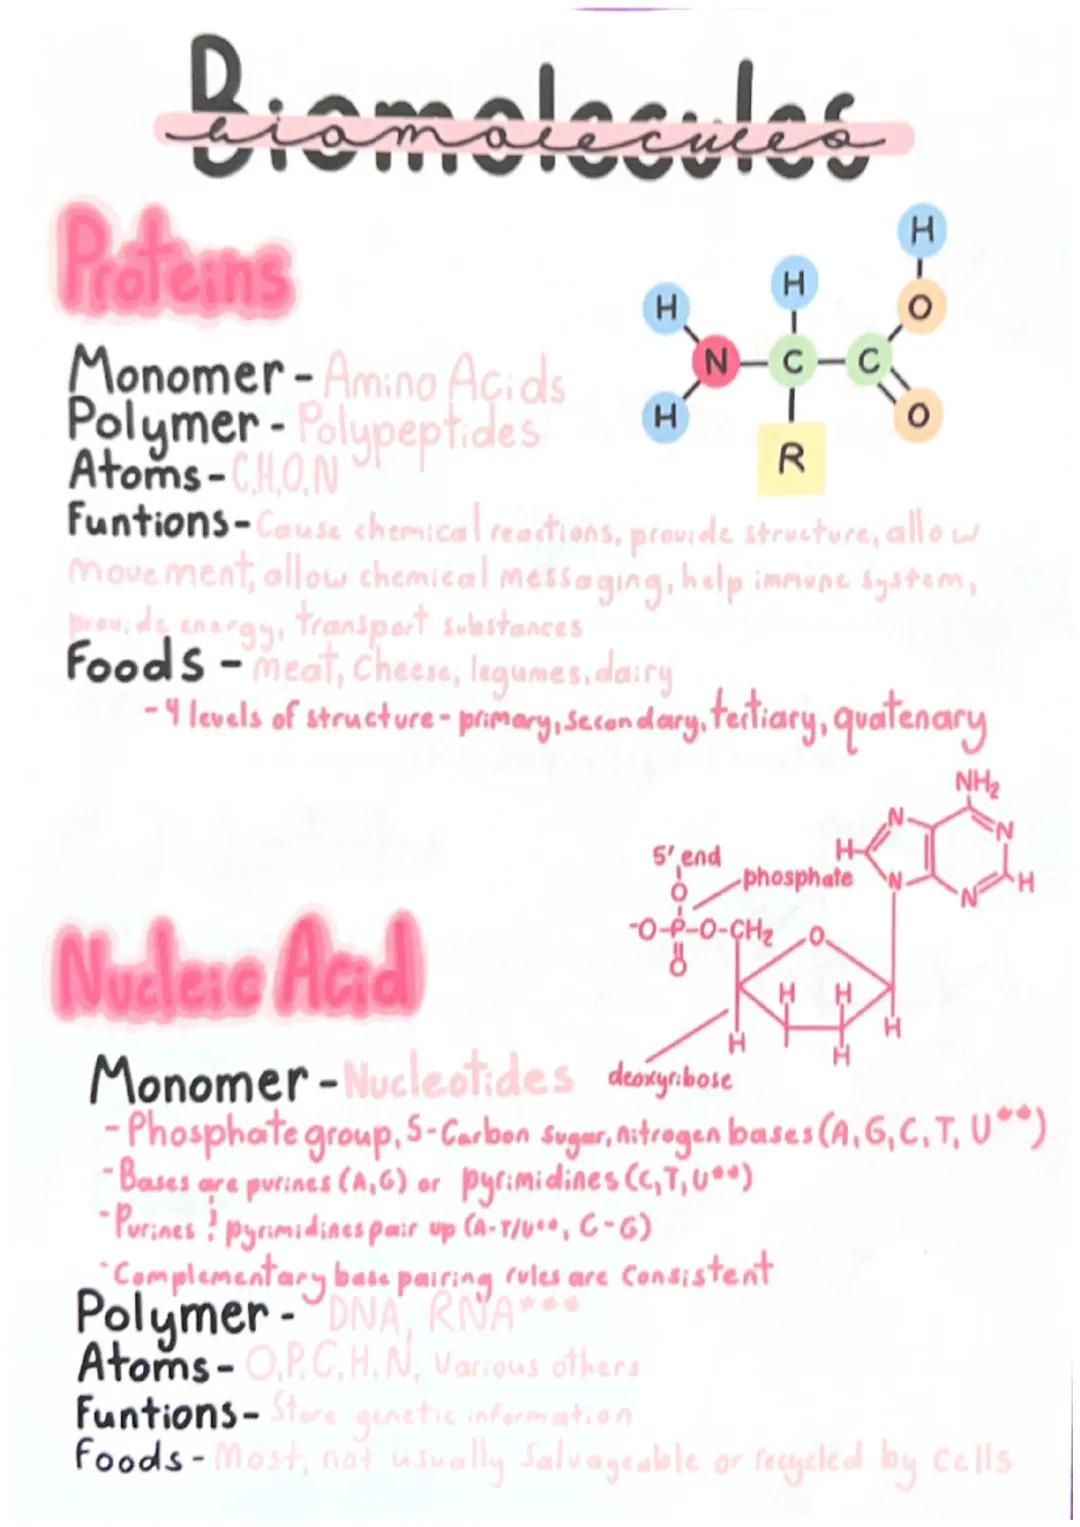 Biomolecules
biomolecules
Proteins
H
H
H
H
N-C-C
O
O
R
Monomer - Amino Acids
Polymer - Polypeptides
Atoms - C,H,O,N
Funtions - Cause chemical reactions, provide structure, allow
movement, allow chemical messaging, help immune system,
provide energy, transport substances
Foods - meat, Cheese, legumes, dairy
- 4 levels of structure - primary, secondary, tertiary, quatenary
NH₂
N
N
5' end
H
phosphate
N
N
H
O
-O-P-O-CH₂
O
O
Nucleic Acid
H
H
H
H
H
deoxyribose
Monomer - Nucleotides
- Phosphate group, 5-Carbon sugar, nitrogen bases (A, G, C, T, U**)
- Bases are purines (A,G) or pyrimidines (C,T,U**)
- Purines & pyrimidines pair up (A-T/U**, C-G)
- Complementary base pairing rules are consistent
Polymer - DNA, RNA***
Atoms - O,P,C,H,N, Various others
Funtions - Store genetic information
Foods - Most, not usually Salvageable or recycled by cells